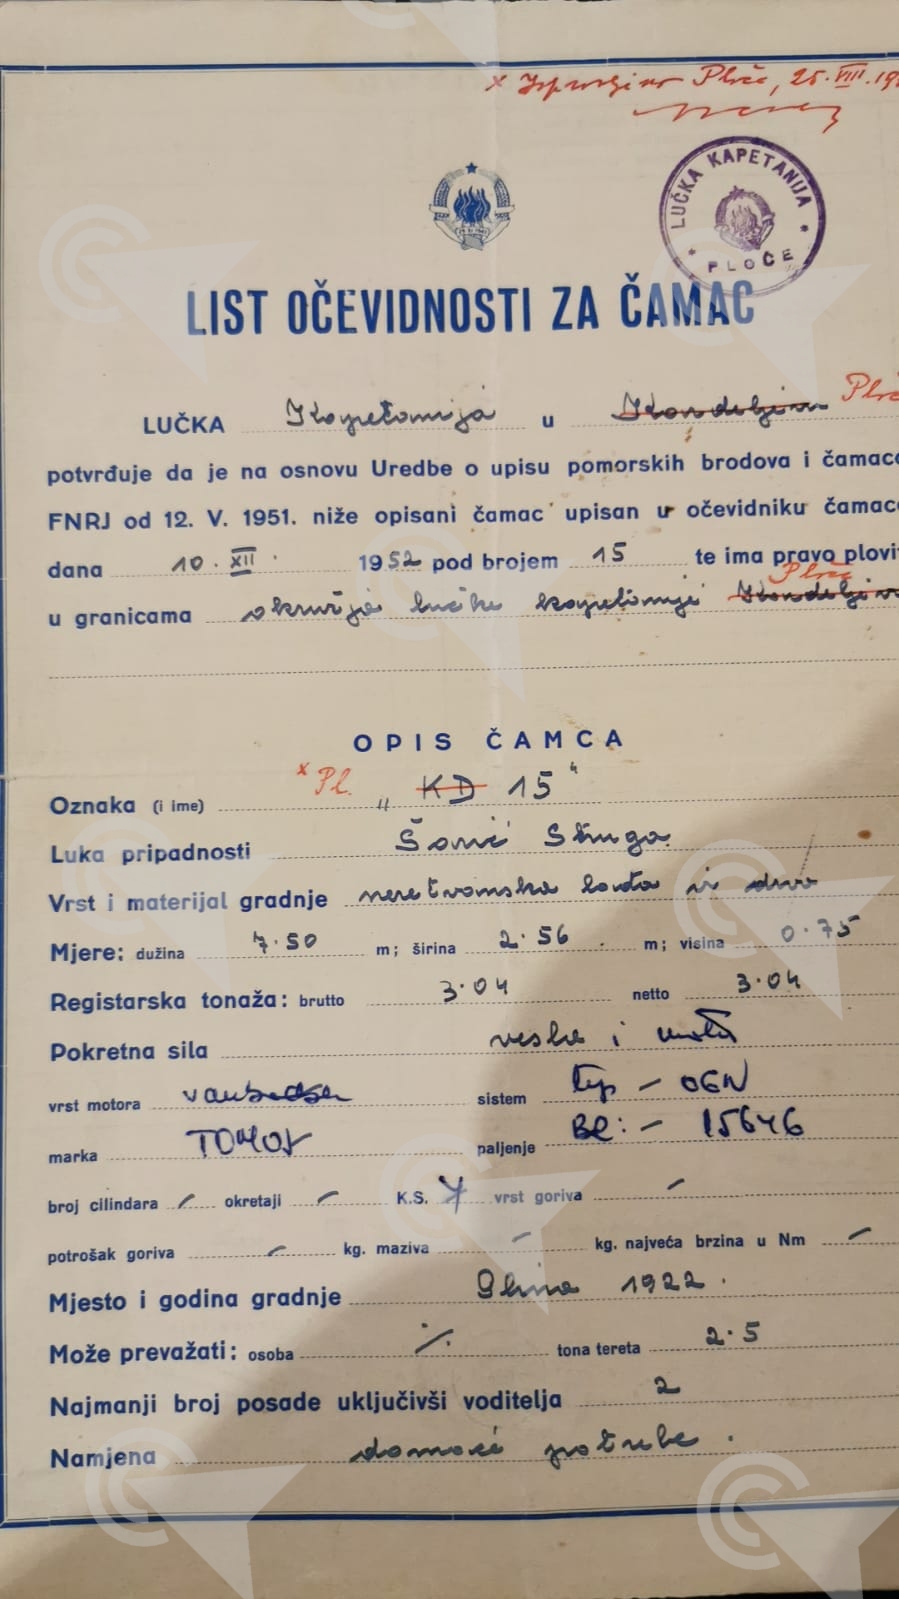 x Ispravljeno Ploče, 25. VIII. 19
LUČKA KAPETANIJA
* PLOČE *
LIST OČEVIDNOSTI ZA ČAMAC
LUČKA Kapetanija u Kardeljevu Ploč
potvrđuje da je na osnovu Uredbe o upisu pomorskih brodova i čamaca
FNRJ od 12. V. 1951. niže opisani čamac upisan u očevidniku čamaca
dana 10. XII. 1952 pod brojem 15 te ima pravo plovit
Ploče
u granicama okružja lučke kapetanije Kardeljevo
OPIS ČAMCA
Oznaka (i ime) x Pl. „ KD 15"
Luka pripadnosti Šarić Struga
Vrst i materijal gradnje neretvanska lađa iz drva
Mjere: dužina 7.50 m; širina 2.56 m; visina 0.75
Registarska tonaža: brutto 3.04 netto 3.04
Pokretna sila vesla i motor
vrst motora sistem typ - OGN
marka TOMOS paljenje Br: - 15646
broj cilindara / okretaji / K.S. 7 vrst goriva /
potrošak goriva / kg. maziva / kg. najveća brzina u Nm /
Mjesto i godina gradnje 1922.
Može prevažati: osoba ·/. tona tereta 2.5
Najmanji broj posade uključivši voditelja 2
Namjena domaće potrebe.